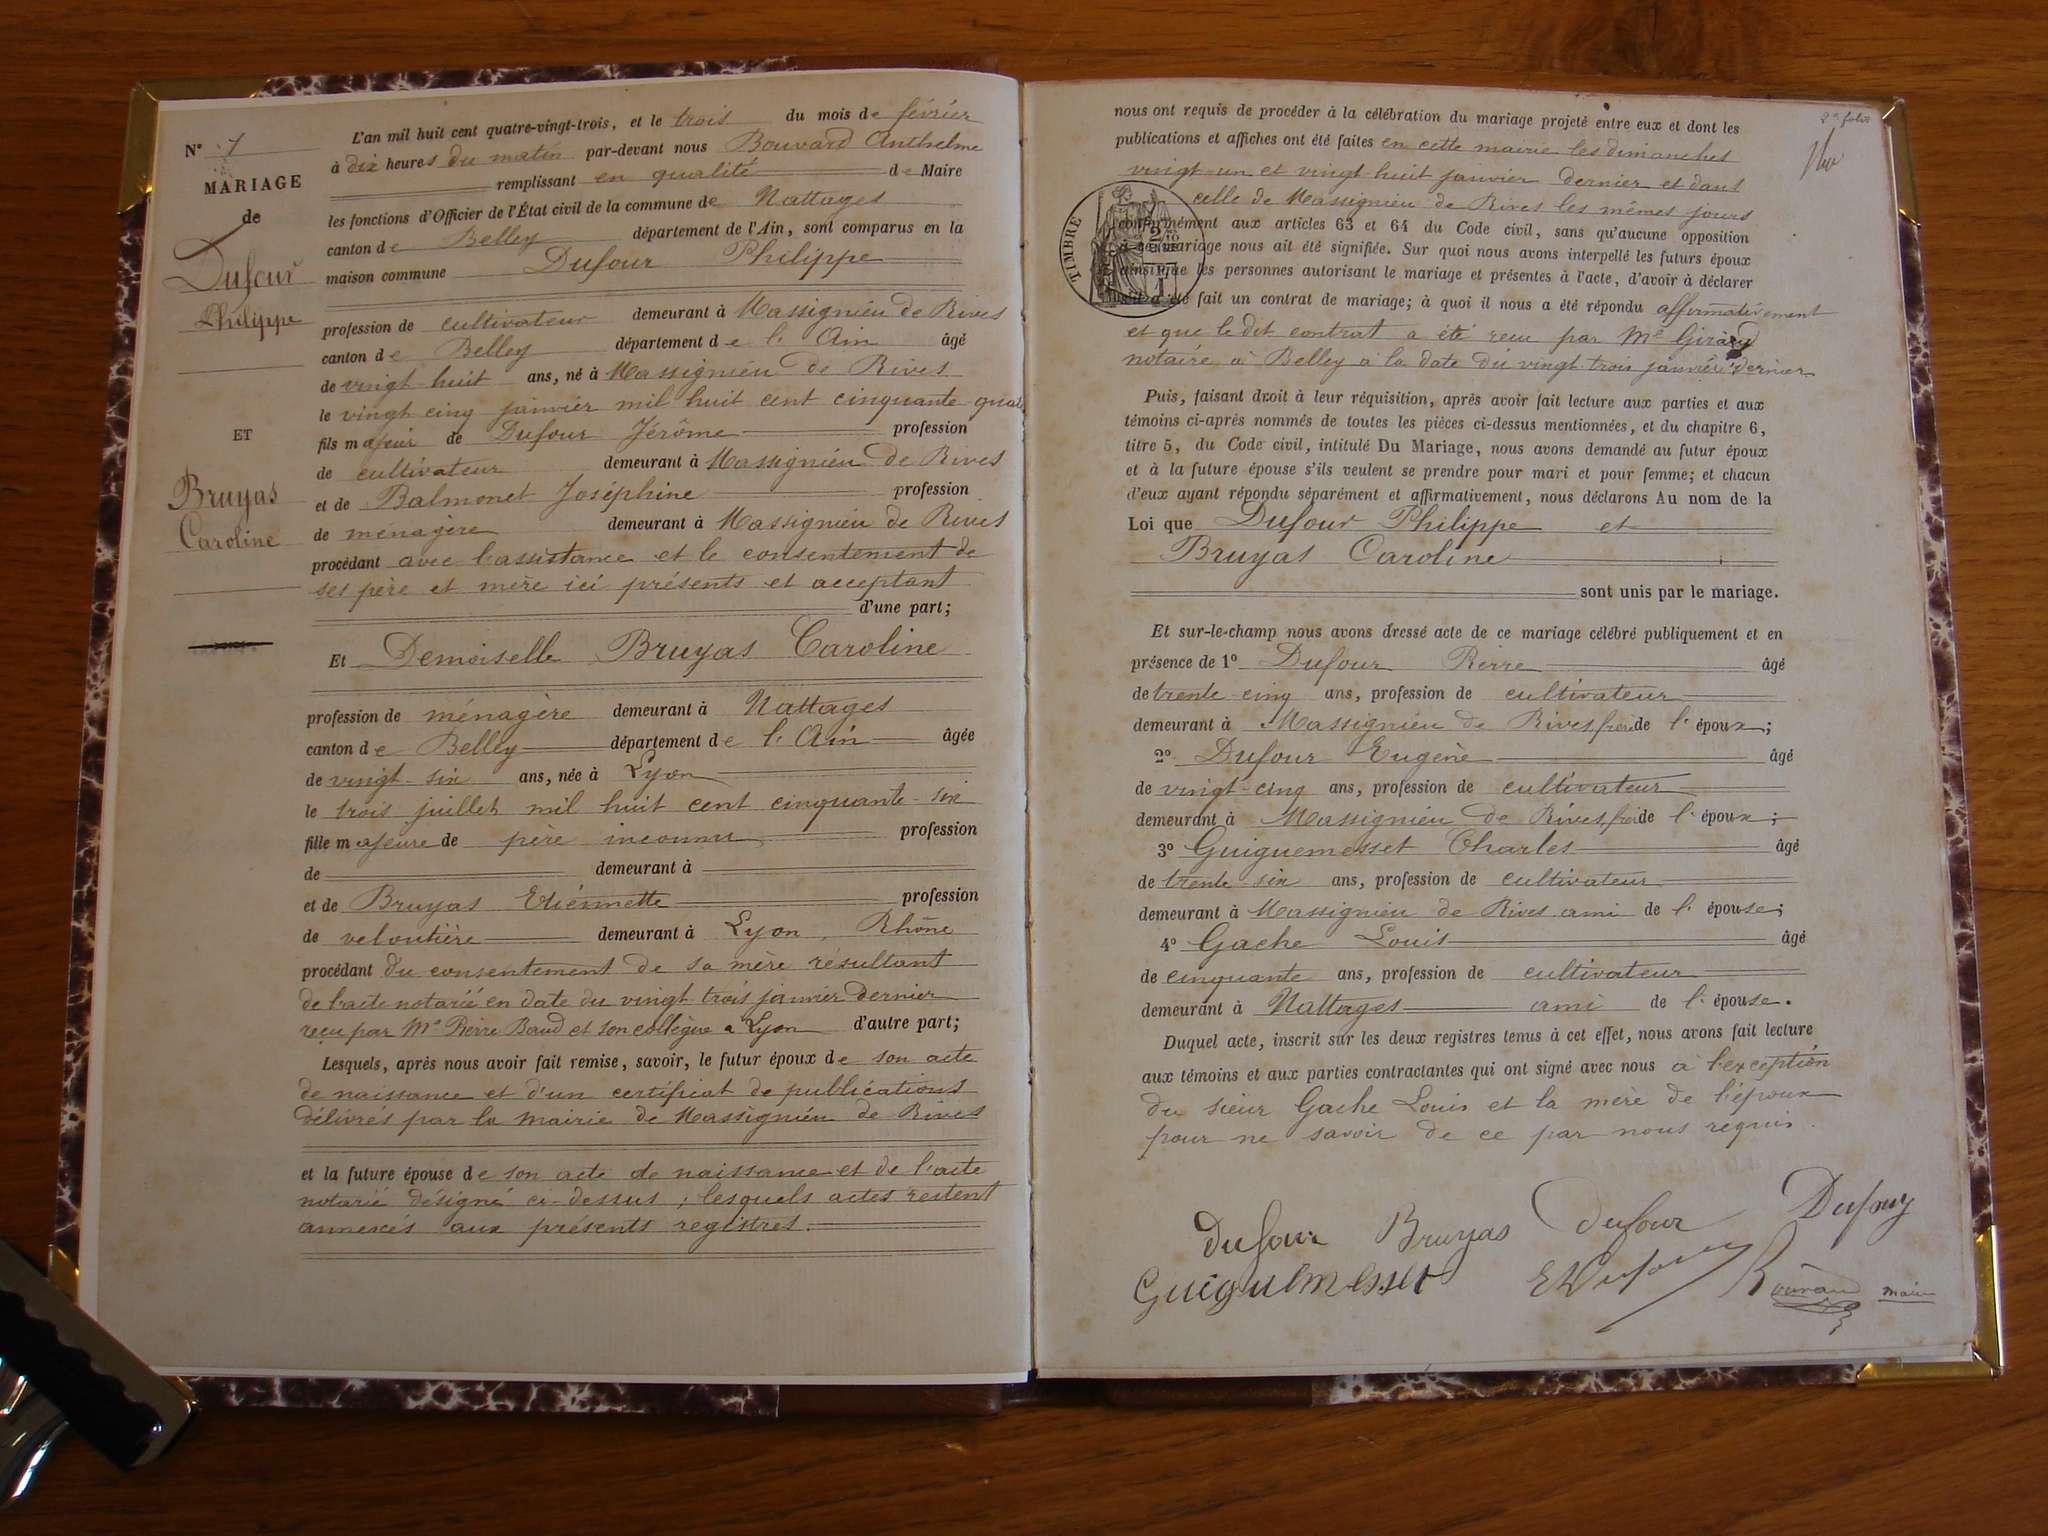 N° 7
MARIAGE
de
Dufour
Philippe
ET
Bruyas
Caroline
L'an mil huit cent quatre-vingt-trois, et le trois du mois de février
à dix heures du matin par-devant nous Bouvard Anthelme
remplissant en qualité de Maire
les fonctions d'Officier de l'État civil de la commune de Nattages
canton de Belley département de l'Ain, sont comparus en la
maison commune Dufour Philippe
profession de cultivateur demeurant à Massignieu de Rives
canton de Belley département de l'Ain âgé
de vingt huit ans, né à Massignieu de Rives
le vingt cinq janvier mil huit cent cinquante
fils majeur de Dufour Jérôme profession
de cultivateur demeurant à Massignieu de Rives
et de Balmonet Joséphine profession
de ménagère demeurant à Massignieu de Rives
procédant avec l'assistance et le consentement de
ses père et mère ici présents et acceptant
d'une part;
Et Demoiselle Bruyas Caroline
profession de ménagère demeurant à Nattages
canton de Belley département de l'Ain âgée
de vingt-six ans, née à Lyon
le trois juillet mil huit cent cinquante-six
fille majeure de père inconnu profession
de demeurant à
et de Bruyas Etiennette profession
de veloutière demeurant à Lyon, Rhône
procédant du consentement de sa mère résultant
de l'acte notarié en date du vingt trois janvier dernier
reçu par Me Pierre Baud et son collègue à Lyon d'autre part;
Lesquels, après nous avoir fait remise, savoir, le futur époux de son acte
de naissance et d'un certificat de publications
délivrés par la mairie de Massignieu de Rives
et la future épouse de son acte de naissance et de l'acte
notarié désigné ci-dessus; lesquels actes restent
annexés aux présents registres.
2e folio
nous ont requis de procéder à la célébration du mariage projeté entre eux et dont les
publications et affiches ont été faites en cette mairie les dimanches
vingt-un et vingt-huit janvier dernier et dans
celle de Massignieu de Rives les mêmes jours
TIMBRE
conformément aux articles 63 et 64 du Code civil, sans qu'aucune opposition
à ce mariage nous ait été signifiée. Sur quoi nous avons interpellé les futurs époux
ainsi que les personnes autorisant le mariage et présentes à l'acte, d'avoir à déclarer
s'il a été fait un contrat de mariage; à quoi il nous a été répondu affirmativement
et que le dit contrat a été reçu par Me Girard
notaire à Belley à la date du vingt trois janvier dernier
Puis, faisant droit à leur réquisition, après avoir fait lecture aux parties et aux
témoins ci-après nommés de toutes les pièces ci-dessus mentionnées, et du chapitre 6,
titre 5, du Code civil, intitulé Du Mariage, nous avons demandé au futur époux
et à la future épouse s'ils veulent se prendre pour mari et pour femme; et chacun
d'eux ayant répondu séparément et affirmativement, nous déclarons Au nom de la
Loi que Dufour Philippe et
Bruyas Caroline
sont unis par le mariage.
Et sur-le-champ nous avons dressé acte de ce mariage célébré publiquement et en
présence de 1° Dufour Pierre âgé
de trente-cinq ans, profession de cultivateur
demeurant à Massignieu de Rives frère de l'époux;
2° Dufour Eugène âgé
de vingt-cinq ans, profession de cultivateur
demeurant à Massignieu de Rives frère de l'époux;
3° Guiguemesset Charles âgé
de trente-six ans, profession de cultivateur
demeurant à Massignieu de Rives ami de l'épouse;
4° Gache Louis âgé
de cinquante ans, profession de cultivateur
demeurant à Nattages ami de l'épouse.
Duquel acte, inscrit sur les deux registres tenus à cet effet, nous avons fait lecture
aux témoins et aux parties contractantes qui ont signé avec nous à l'exception
du sieur Gache Louis et la mère de l'époux
pour ne savoir de ce par nous requis.
Dufour Bruyas Dufour Dufour
Guiguemesset EDufour Bouvard maire